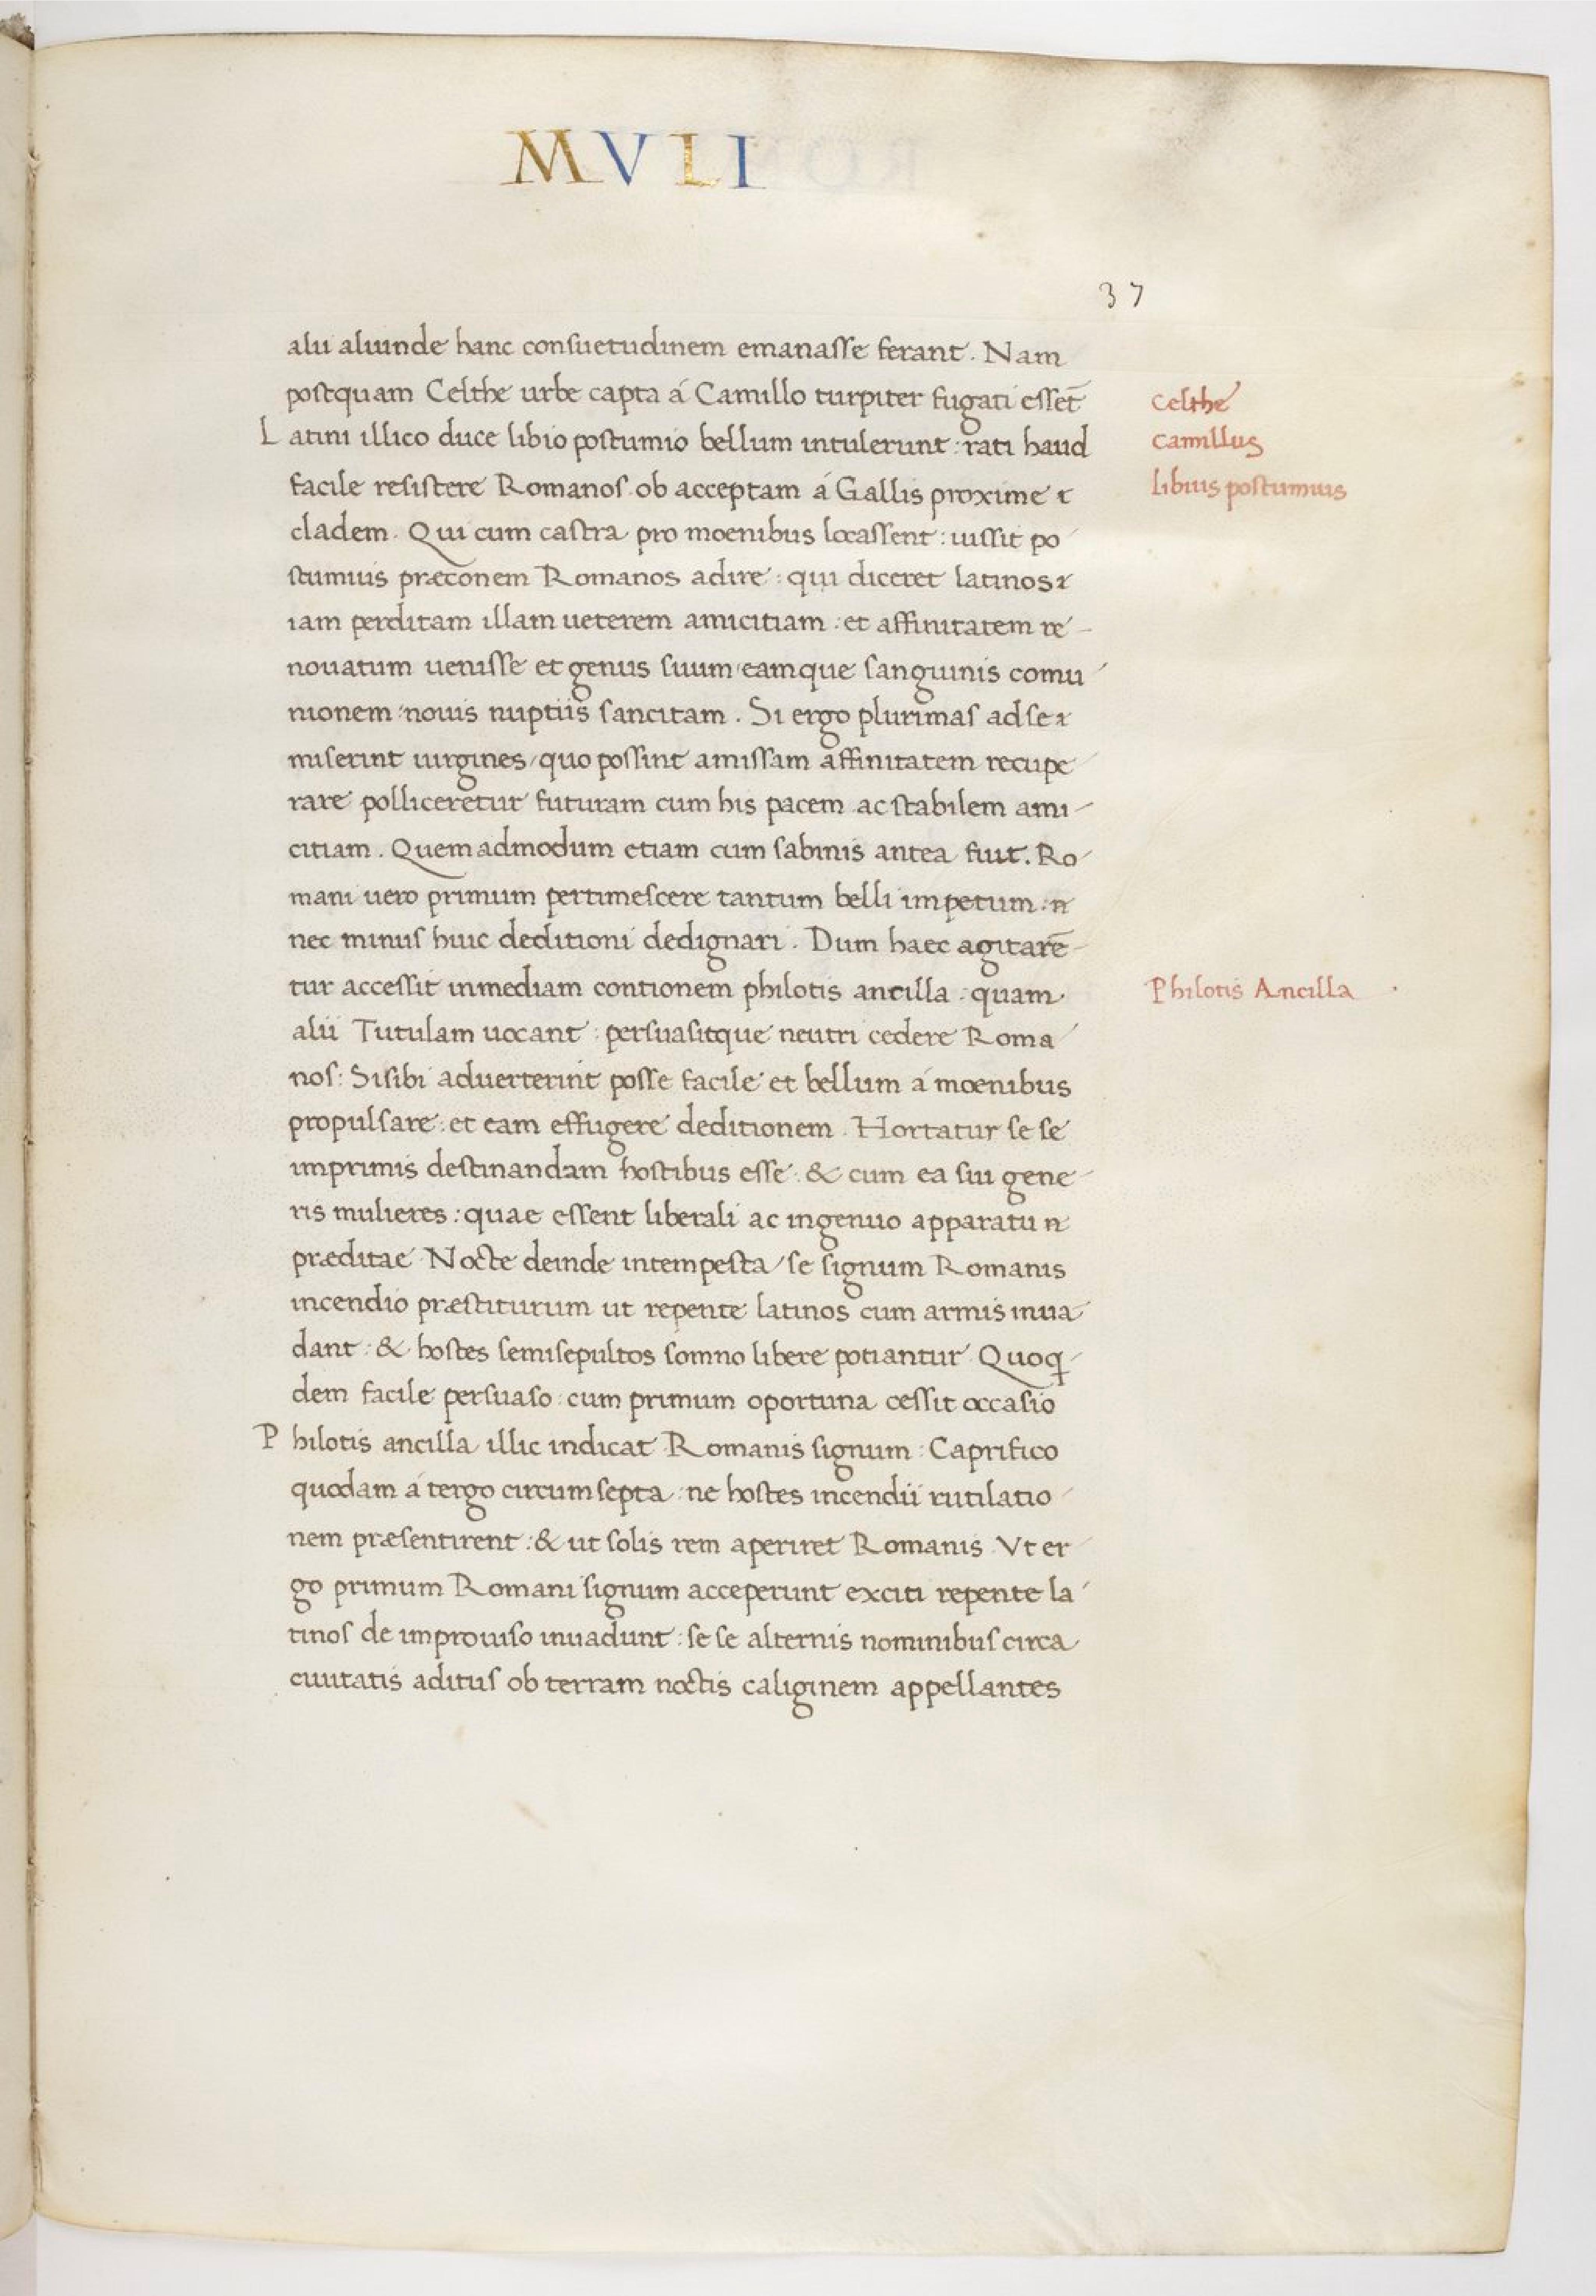 MVLI
37
alii aliunde hanc consuetudinem emanasse ferant. Nam
postquam Celthe urbe capta á Camillo turpiter fugati essēt
Celthe
Latini illico duce libio postumio bellum intulerunt: rati haud
Camillus
facile resistere Romanos ob acceptam á Gallis proxime
libius postumius
cladem. Qui cum castra pro moenibus locassent: iussit po
stumius præconem Romanos adire: qui diceret latinos
iam perditam illam ueterem amicitiam: et affinitatem re-
nouatum uenisse et genus suum eamque sanguinis comu
nionem nouis nuptiis sancitam. Si ergo plurimas ad se
miserint uirgines, quo possint amissam affinitatem recupe
rare polliceretur futuram cum his pacem ac stabilem ami-
citiam. Quemadmodum etiam cum sabinis antea fuit. Ro
mani uero primum pertimescere tantum belli impetum:
nec minus huic deditioni dedignari. Dum haec agitarē-
tur accessit in mediam contionem philotis ancilla: quam
Philotis Ancilla
alii Tutulam uocant: persuasitque neutri cedere Roma
nos: Si sibi aduerterint posse facile et bellum á moenibus
propulsare: et eam effugere deditionem. Hortatur se se
imprimis destinandam hostibus esse. & cum ea sui gene
ris mulieres: quae essent liberali ac ingenuo apparatu
præditae. Nocte deinde intempesta se signum Romanis
incendio præstiturum ut repente latinos cum armis inua
dant: & hostes semisepultos somno libere potiantur. Quoq
dem facile persuaso: cum primum oportuna cessit occasio
Philotis ancilla illic indicat Romanis signum: Caprifico
quodam á tergo circumsepta: ne hostes incendii rutilatio
nem præsentirent: & ut solis rem aperiret Romanis. Vt er
go primum Romani signum acceperunt exciti repente la
tinos de improuiso inuadunt: se se alternis nominibus circa
ciuitatis aditus ob terram noctis caliginem appellantes